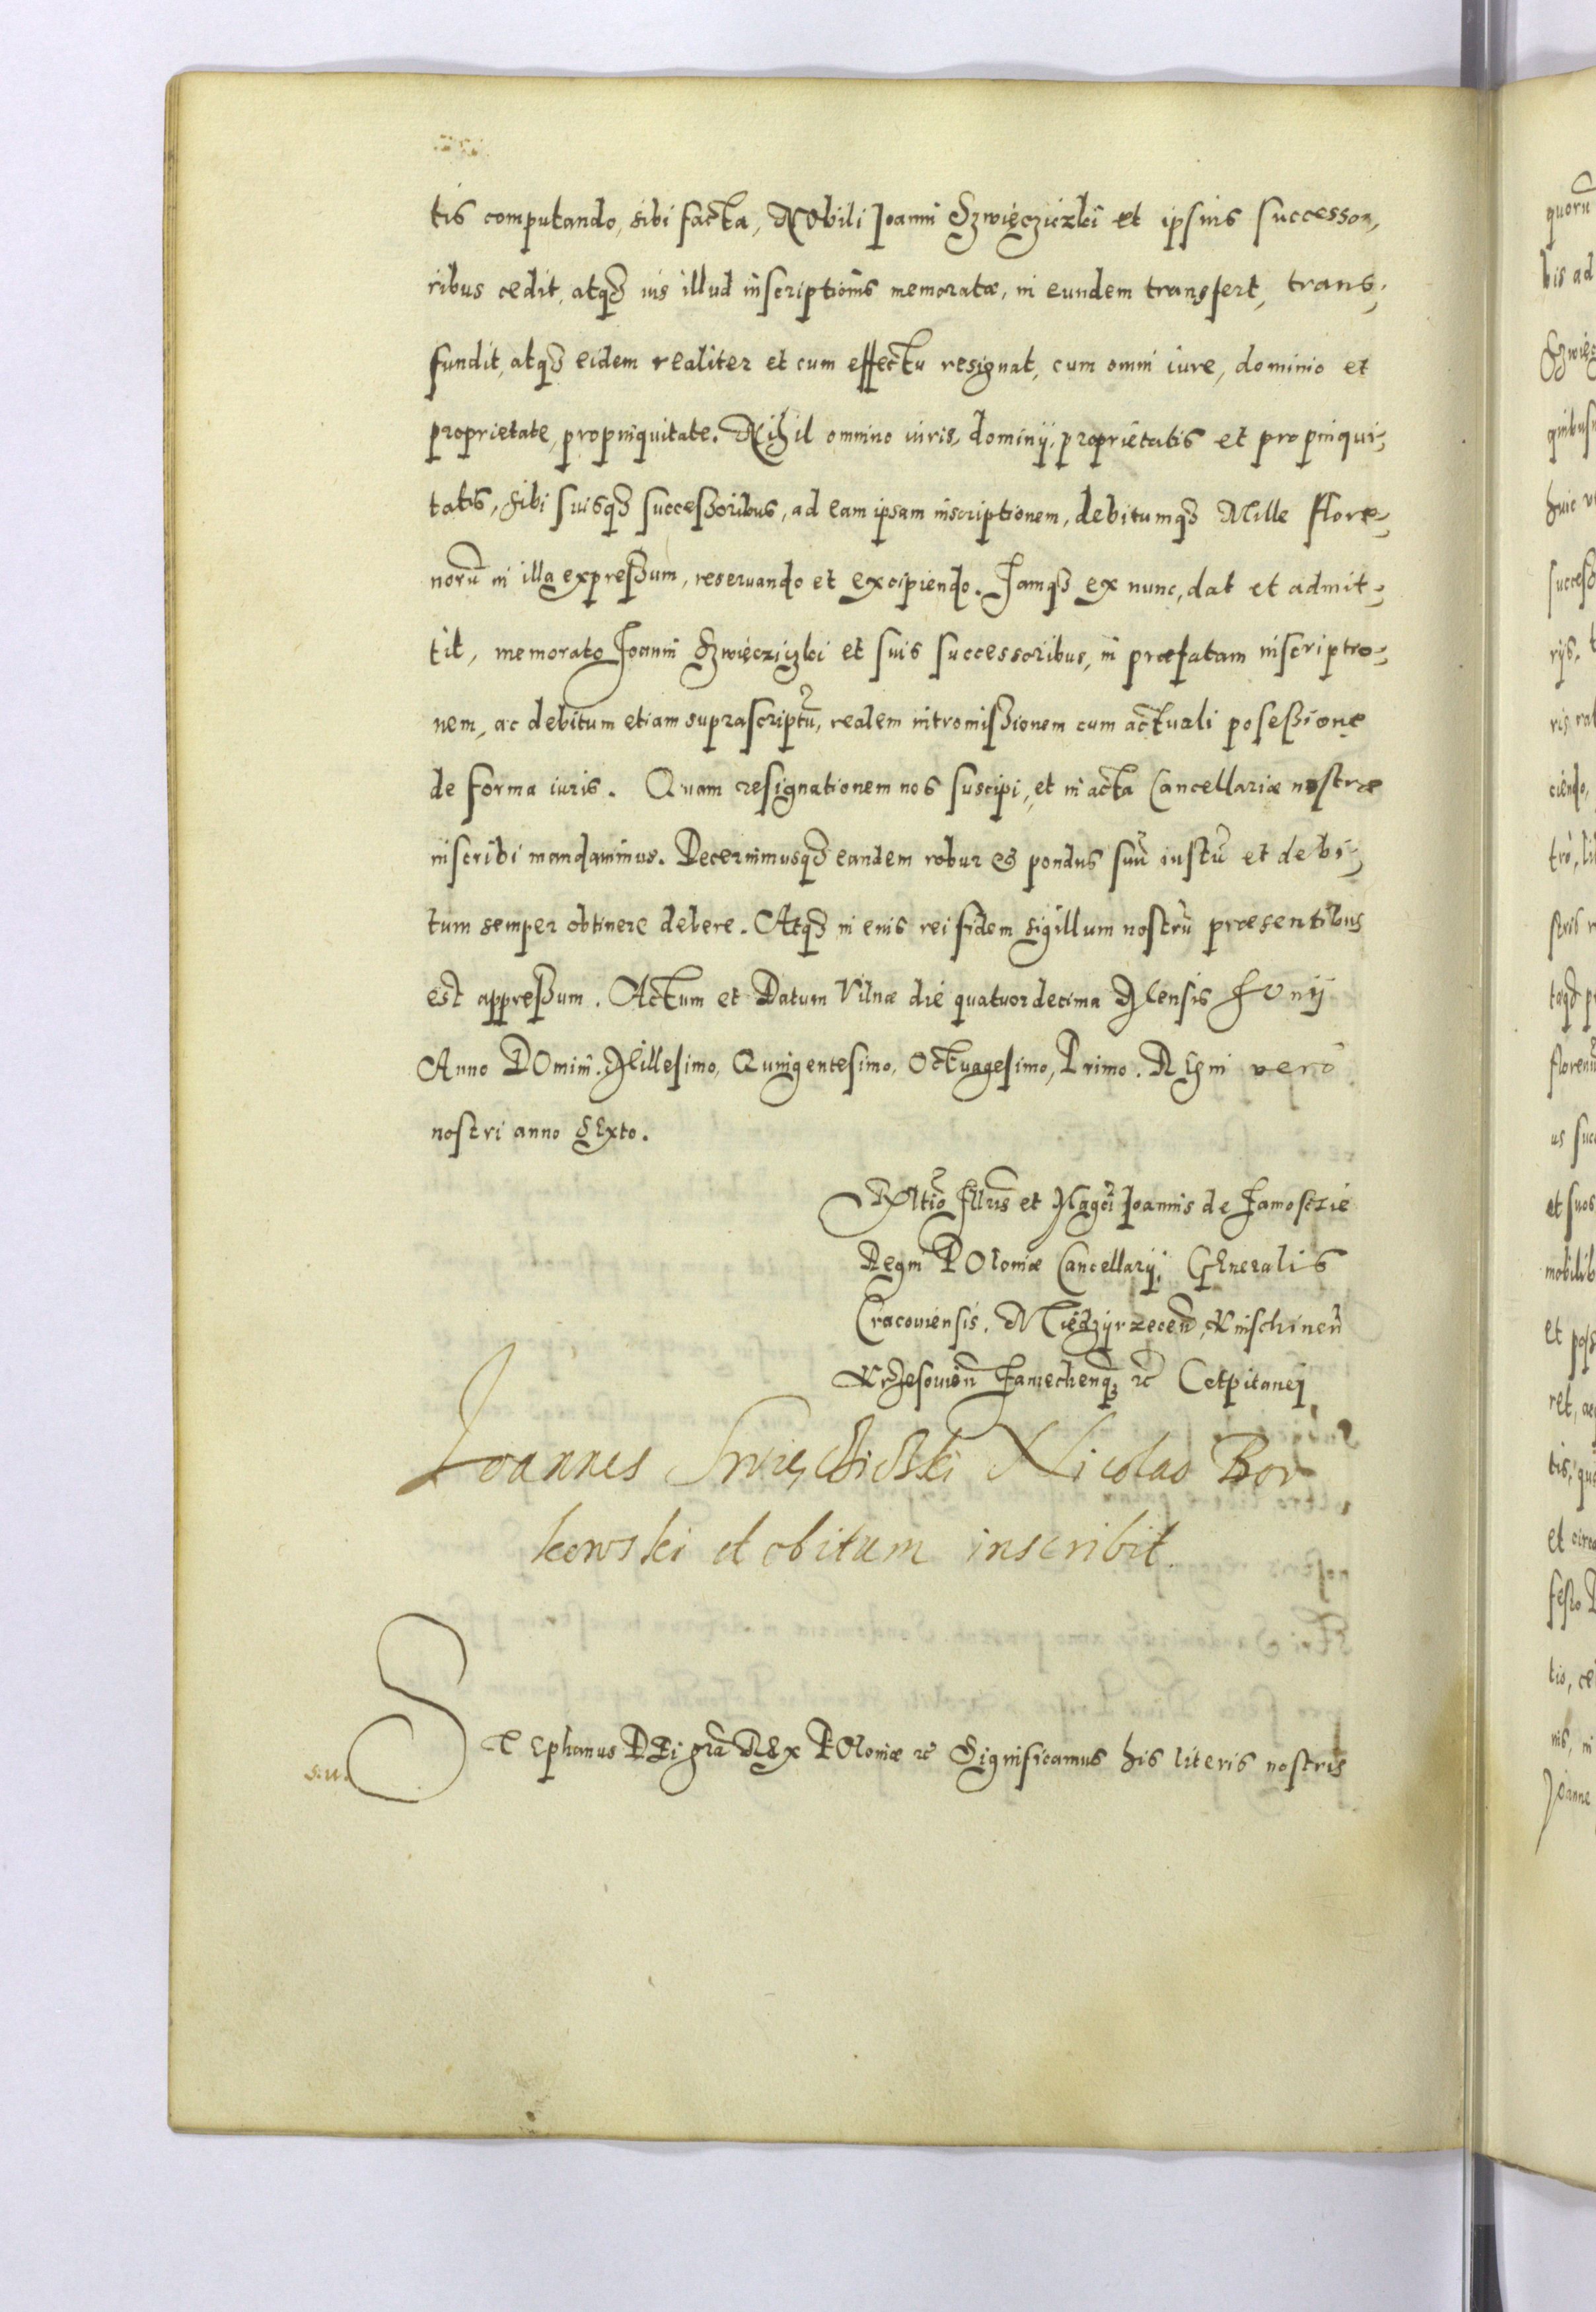 tis computando, sibi facta, Nobili Joanni Szwięcziczki et ipsius successo,
ribus cedit, atq₃ ius illud inscriptionis memoratæ, in eundem transfert, trans,
fundit, atq₃ eidem realiter et cum effectu resignat, cum omni iure, dominio et
proprietate, propinquitate. Nihil omnino iuris, dominij, proprietatis et propinqui,
tatis, sibi suisq₃ successoribus, ad eam ipsam inscriptionem, debitumq₃ Mille flore,
norū in illa expressum, reseruando et excipiendo. Jamq₃ ex nunc, dat et admit,
tit, memorato Joanni Szwięcziczki et suis successoribus, in præfatam inscriptio,
nem, ac debitum etiam suprascriptū, realem intromissionem cum actuali posessione
de forma iuris. Quam resignationem nos suscipi, et in acta Cancellariæ nostræ
inscribi mandauimus. Decernimusq₃ eandem robur et pondus suū iustū et debi,
tum semper obtinere debere. Atq₃ in eius rei fidem sigillum nostrū præsentibus
est appressum. Actum et Datum Vilnæ die quatuordecima Mensis Junij
Anno Domini Millesimo, Quingentesimo, Octuagesimo, Primo. Regni vero
nostri anno Sexto.
Rltio Illris et Magci Joannis de Zamoscie
Regni Poloniæ Cancellarij, Generalis
Cracouiensis, Międzyrzecen̄, Knischinen̄
Zamechenq₃ rc Capitanei
Joannes Swięcziczki Nicolao Bor
kowski debitum inscribit.
Stephanus Dei gra Rex Poloniæ rc Significamus his literis nostris